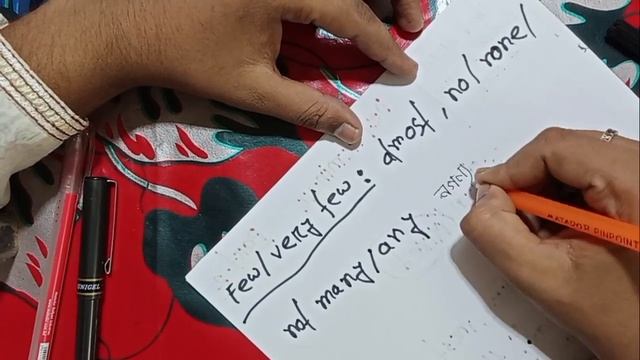 Few/very few: almost, no/none/
not many/any
UNIGEL
MATADOR PINPOINT